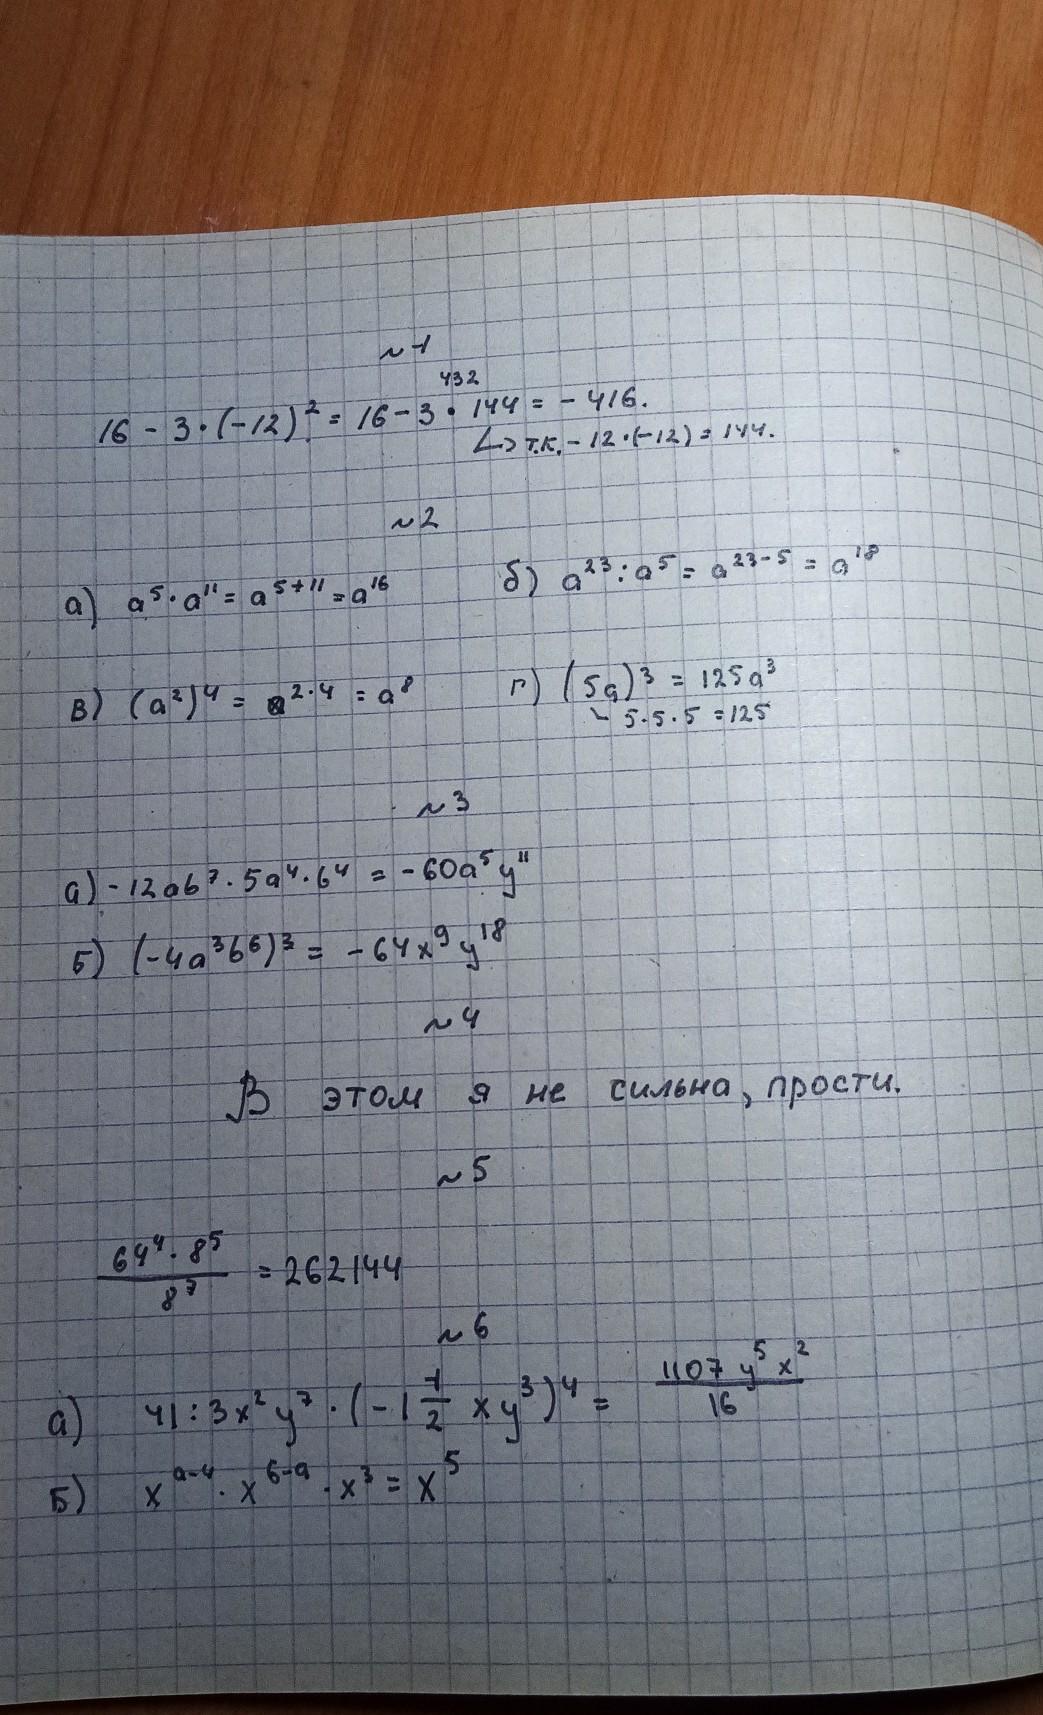 ~1
432
16 - 3·(-12)² = 16 - 3 · 144 = - 416.
↳ т.к. - 12·(-12) = 144.
~2
а) a⁵·a¹¹ = a⁵⁺¹¹ = a¹⁶ б) a²³ : a⁵ = a²³⁻⁵ = a¹⁸
в) (a²)⁴ = a²·⁴ = a⁸ г) (5a)³ = 125a³
5·5·5 = 125
~3
а) -12ab⁷·5a⁴·b⁴ = -60a⁵y¹¹
Б) (-4a³b⁶)³ = -64x⁹y¹⁸
~4
В этом я не сильна, прости.
~5
64⁴·8⁵ / 8⁷ = 262144
~6
а) 41 : 3x²y⁷ · (-1 1/2 xy³)⁴ = 1107 y⁵ x² / 16
Б) x^(a-4) · x^(6-a) · x³ = x⁵